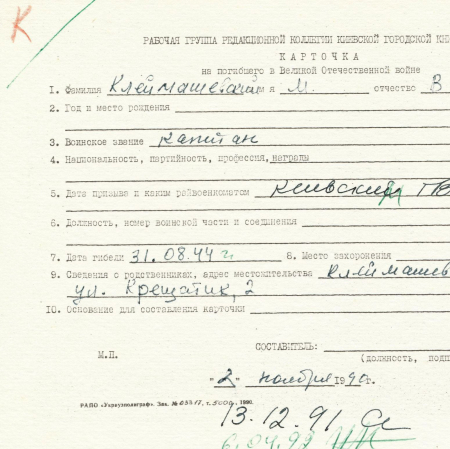 К
РАБОЧАЯ ГРУППА РЕДАКЦИОННОЙ КОЛЛЕГИИ КИЕВСКОЙ ГОРОДСКОЙ КНИ
КАРТОЧКА
на погибшего в Великой Отечественной войне
1. Фамилия Клеймашевский имя М. отчество В
2. Год и место рождения
3. Воинское звание капитан
4. Национальность, партийность, профессия, награды
5. Дата призыва и каким райвоенкоматом Киевским ГВ
6. Должность, номер воинской части и соединения
7. Дата гибели 31.08.44 г 8. Место захоронения
9. Сведения о родственниках, адрес местожительства Клеймашев
ул. Крещатик, 2
10. Основание для составления карточки
СОСТАВИТЕЛЬ:
М.П. (должность, подп
"2" ноября 1990г.
РАПО «Укрвузполиграф». Зак. № 03317, т. 5000, 1990.
13.12.91
6.04.92